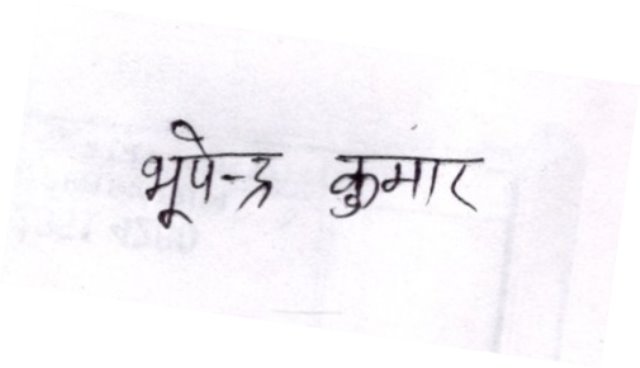 भूपेन्द्र कुमार